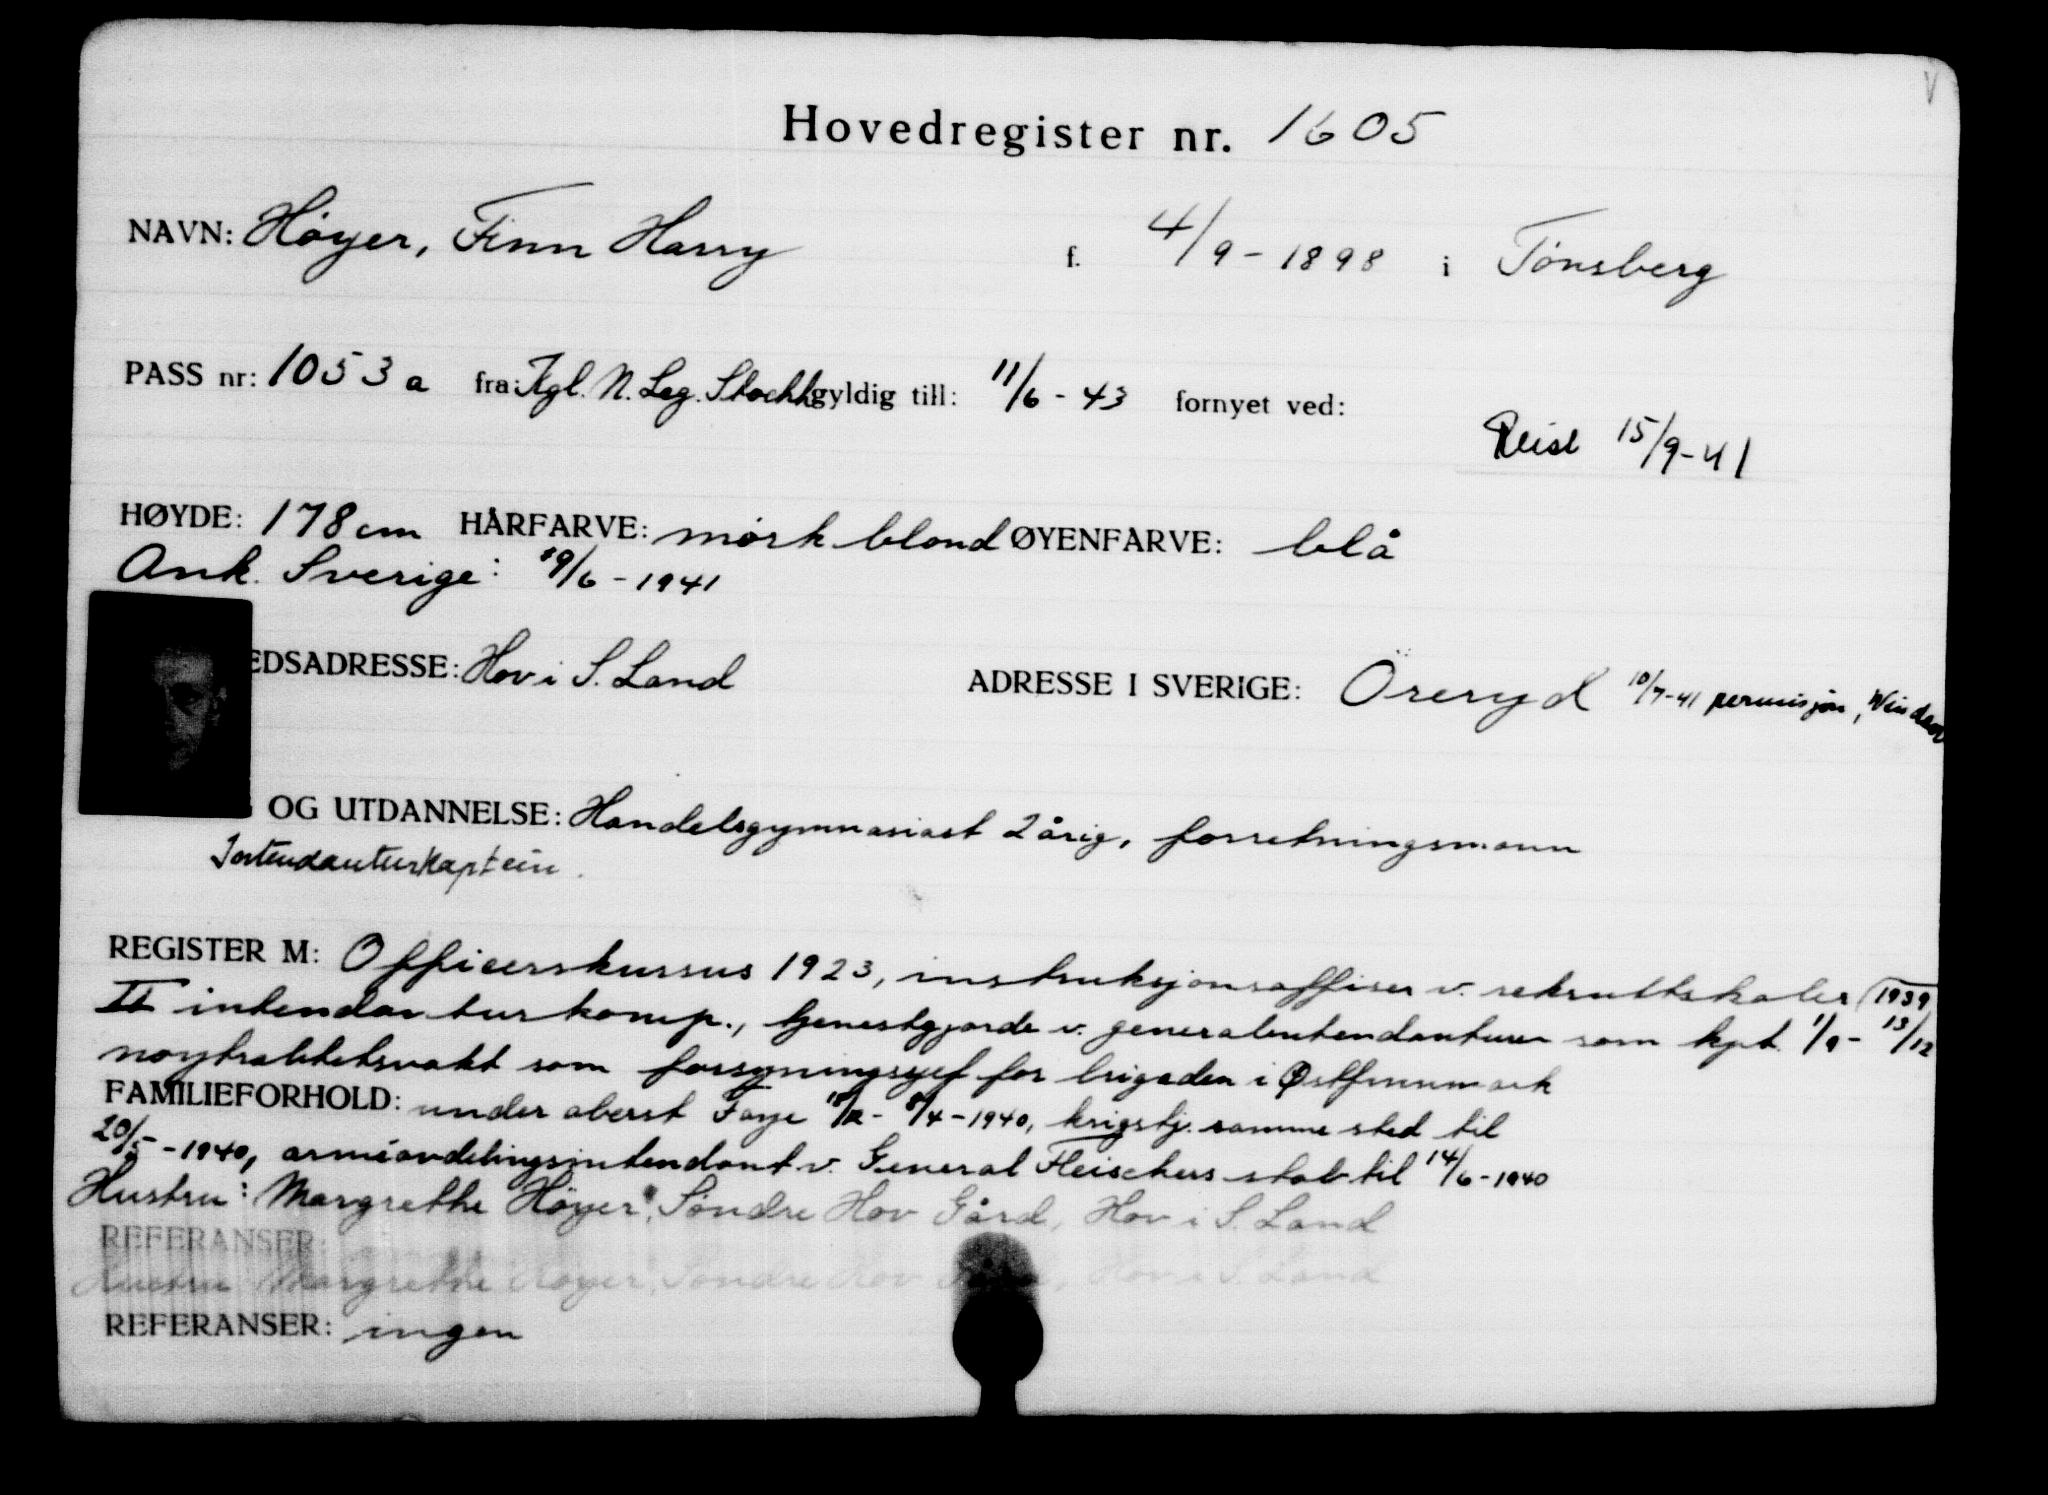 V
Hovedregister nr. 1605
NAVN: Høyer, Finn Harry f. 4/9-1898 i Tønsberg
PASS nr: 1053a fra: Kgl. N. Leg. Stockh. gyldig till: 11/6-43 fornyet ved:
Reist 15/9-41
HØYDE: 178 cm HÅRFARVE: mørk blond ØYENFARVE: blå
Ank. Sverige: /6-1941
EDSADRESSE: Hov i S. Land ADRESSE I SVERIGE: Öreryd 10/7-41 permisjon,
OG UTDANNELSE: Handelsgymnasiast 2 årig, forretningsmann
Intendanturkaptein.
REGISTER M: Officerskursus 1923, instruksjonsoffiser v. rekruttskoler (1939
II intendanturkomp., tjenestgjorde v. generalintendanturen som kpt. 1/9- 13/12
nøytralitetsvakt som forsyningssjef for brigaden i Østfinnmark
FAMILIEFORHOLD: under oberst Faye 15/12- 8/4-1940, krigstj. samme sted til
20/5-1940, arméavdelingsintendant v. General Fleischers stab til 14/6-1940
Hustru: Margrethe Høyer, Søndre Hov Gård, Hov i S. Land
REFERANSER:
Hustru Margrethe Høyer, Søndre Hov Gård, Hov i S. Land
REFERANSER: ingen